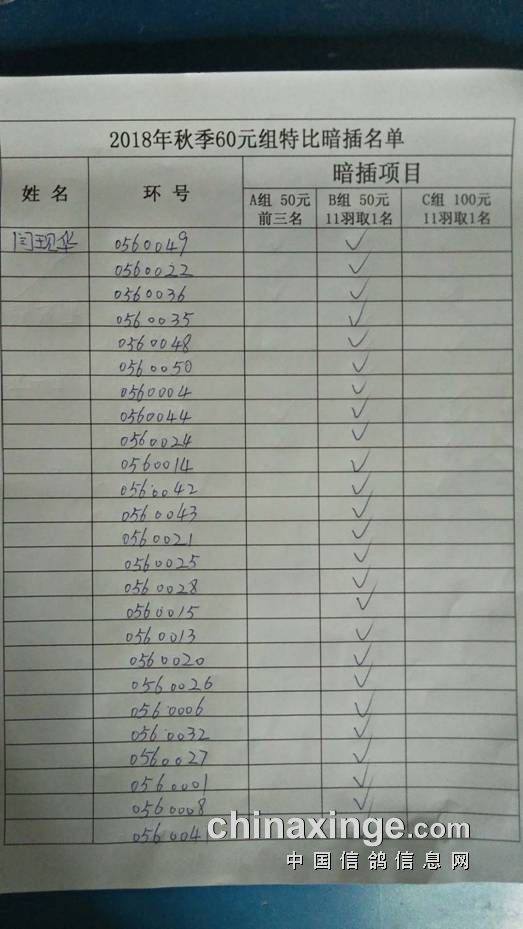 2018年秋季60元组特比暗插名单
姓名 环号 暗插项目
A组 50元 B组 50元 C组 100元
前三名 11羽取1名 11羽取1名
闫现华 0560049 ✓
0560022 ✓
0560036 ✓
0560035 ✓
0560048 ✓
0560050 ✓
0560004 ✓
0560044 ✓
0560024 ✓
0560014 ✓
0560042 ✓
0560043 ✓
0560021 ✓
0560025 ✓
0560028 ✓
0560015 ✓
0560013 ✓
0560020 ✓
0560026 ✓
0560006 ✓
0560032 ✓
0560027 ✓
0560001 ✓
0560008 ✓
0560041
chinaxinge.com
中国信鸽信息网